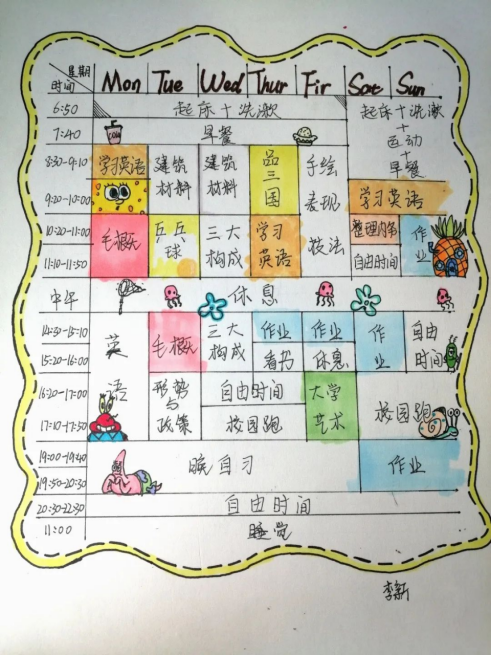 星期 Mon Tue Wed Thur Fir Sat Sun
时间
6:50 起床+洗漱 起床+洗漱
+
运动
7:40 早餐
+
早餐
8:30-9:10 学习英语 建筑 建筑 品 手绘
材料 材料 三 表现 学习英语
9:20-10:00 国
10:20-11:00 毛概 乒乓 三大 学习 技法 整理内务 作
11:10-11:50 球 构成 英语 自由时间 业
中午 休息
14:30-15:10 英 毛概 三大 作业 作业 作 自由
15:20-16:00 构成 看书 休息 业 时间
16:20-17:00 语 形势 自由时间 大学 校园跑
与
17:10-17:50 政策 校园跑 艺术
19:00-19:40 晚自习 作业
19:50-20:30
20:30-22:30 自由时间
11:00 睡觉
李新